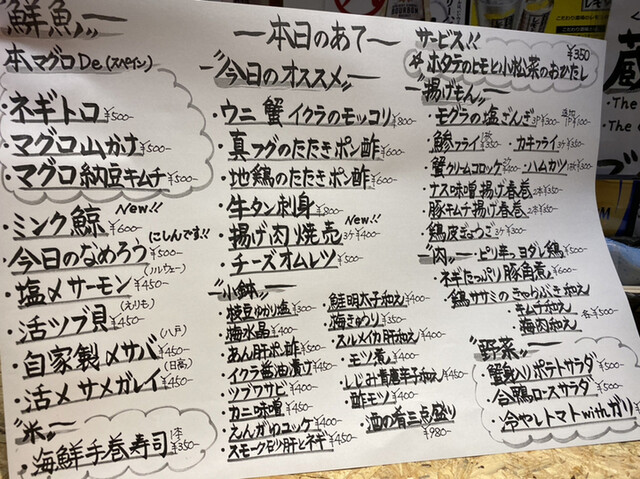 鮮魚
本マグロDe (スペイン)
・ネギトロ ¥500-
・マグロ山かけ ¥500-
・マグロ納豆キムチ ¥500-
・ミンク鯨 New!! ¥600-
・今日のなめろう にしんです!! ¥500-
・塩〆サーモン (ノルウェー) ¥450-
・活ツブ貝 (えりも) ¥450-
・自家製〆サバ (八戸) ¥450-
・活〆サメガレイ (日高) ¥450-
米
・海鮮手巻寿司 1本 ¥350-
本日のあて
今日のオススメ
・ウニ蟹イクラのモッコリ ¥800-
・真フグのたたきポン酢 ¥600-
・地鶏のたたきポン酢 ¥600-
・牛タン刺身 ¥800-
・揚げ肉焼売 New!! 3ヶ ¥400-
・チーズオムレツ ¥500-
小鉢
・枝豆ゆかり塩 ¥300-
・梅水晶 ¥400-
・あん肝ポン酢 ¥500-
・イクラ醤油漬け ¥450-
・ツブワサビ ¥400-
・カニ味噌 ¥450-
・えんがわコッケ ¥400-
・スモーク砂肝とネギ ¥450-
・鮭明太子和え ¥400-
・梅きゅうり ¥350-
・スルメイカ肝和え ¥400-
・モツ煮 ¥400-
・しじみ青唐辛子和え ¥450-
・酢モツ ¥400-
・酒の肴三点盛り ¥980-
サービス!!
☆ホタテのヒモと小松菜のおかだし ¥350
揚げもん
・モグラの塩ざんぎ 3P ¥300- 1P ¥100-
・鯵フライ ¥350- ・カキフライ 3ヶ ¥350-
・蟹クリームコロッケ ¥400- ・ハムカツ ¥500-
・ナス味噌揚げ春巻 2本 ¥350-
・豚キムチ揚げ春巻 2本 ¥350-
・鶏皮ぎょうざ 3ヶ ¥300-
肉 ・ピリ辛っヨダレ鶏 ¥500-
・ネギたっぷり豚角煮 ¥600-
・鶏ササミのきゃらぶき和え
・キムチ和え
・梅肉和え 各 ¥500-
野菜
・蟹入りポテトサラダ ¥500-
・合鴨ロースサラダ ¥500-
・冷やしトマトwithガリ
蔵
The
The